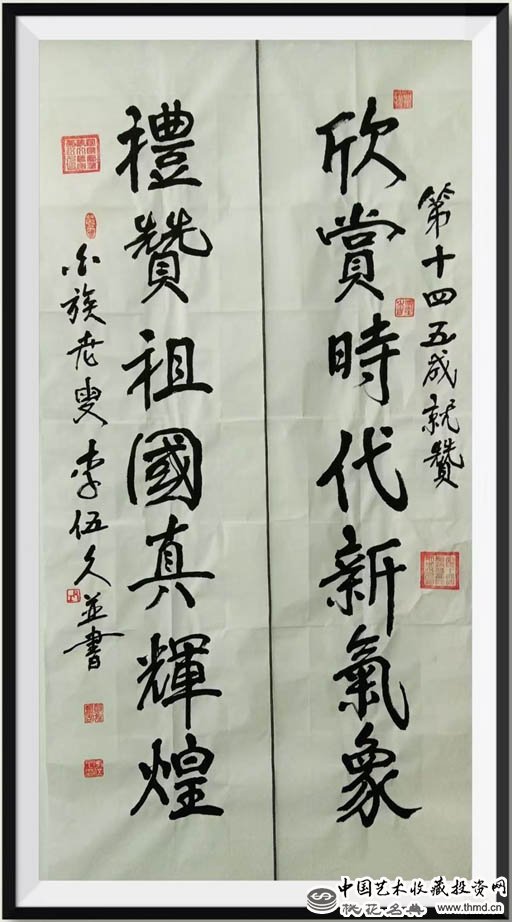 第十四五成就贊
欣賞時代新氣象
禮贊祖國真輝煌
白族老叟李伍久並書
中国艺术收藏投资网
桃花名典 www.thmd.cn